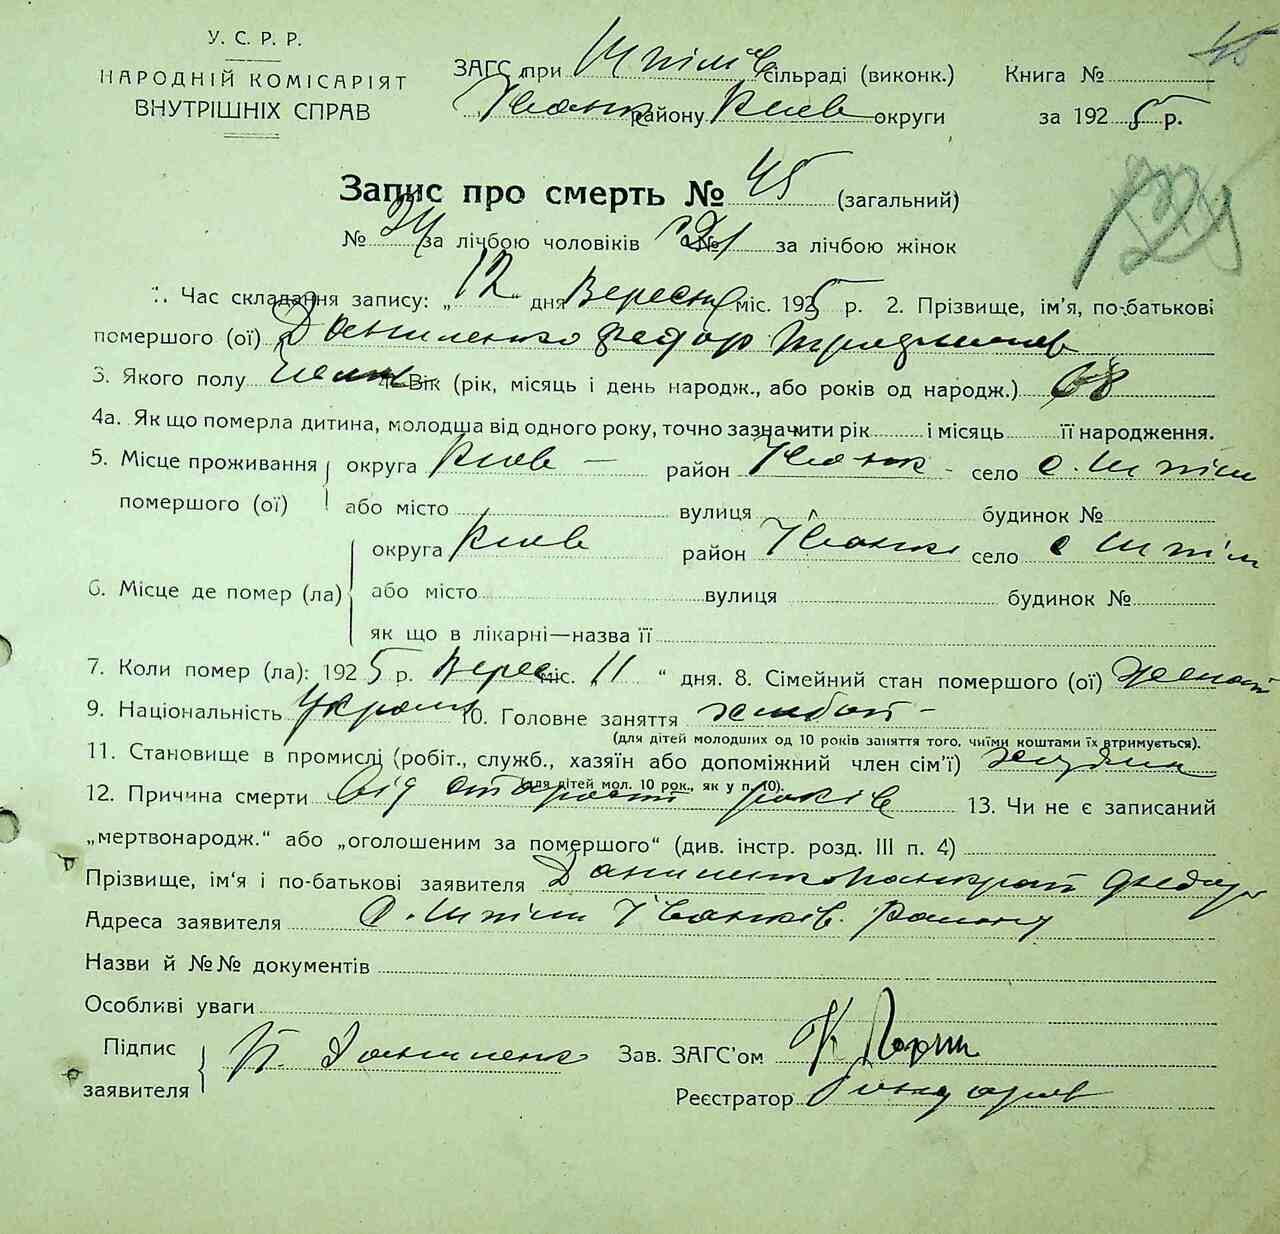 У. С. Р. Р.
НАРОДНІЙ КОМІСАРІЯТ
ВНУТРІШНІХ СПРАВ
ЗАГС при Шпілів сільраді (виконк.)
Іванк району Київ округи
Книга №
за 1925 р.
45
Запис про смерть № 45 (загальний)
№ 24 за лічбою чоловіків № 21 за лічбою жінок
1. Час складання запису: „12“ дня Вересня міс. 1925 р. 2. Прізвище, ім’я, по-батькові
помершого (ої) Даниленко Федор
3. Якого полу 4. Вік (рік, місяць і день народж., або років од народж.) 68
4а. Як що померла дитина, молодша від одного року, точно зазначити рік і місяць її народження.
5. Місце проживання помершого (ої) округа Київ – район Іванк – село с. Шпіли
або місто вулиця будинок №
6. Місце де помер (ла) округа Київ район Іванк село с Шпіли
або місто вулиця будинок №
як що в лікарні—назва її
7. Коли помер (ла): 1925 р. Верес міс. „11“ дня. 8. Сімейний стан помершого (ої) женат
9. Національність Украін 10. Головне заняття хлібоп –
(для дітей молодших од 10 років заняття того, чиїми коштами їх втримується).
11. Становище в промислі (робіт., служб., хазяїн або допоміжний член сім’ї) хазяин
(для дітей мол. 10 рок., як у п. 10).
12. Причина смерти від старости років 13. Чи не є записаний
„мертвонародж.“ або „оголошеним за помершого“ (див. інстр. розд. III п. 4)
Прізвище, ім’я і по-батькові заявителя Даниленко Панкрат Федор
Адреса заявителя с. Шпіли Іванків. Району
Назви й №№ документів
Особливі уваги
Підпис заявителя П. Даниленко
Зав. ЗАГС’ом
Реєстратор